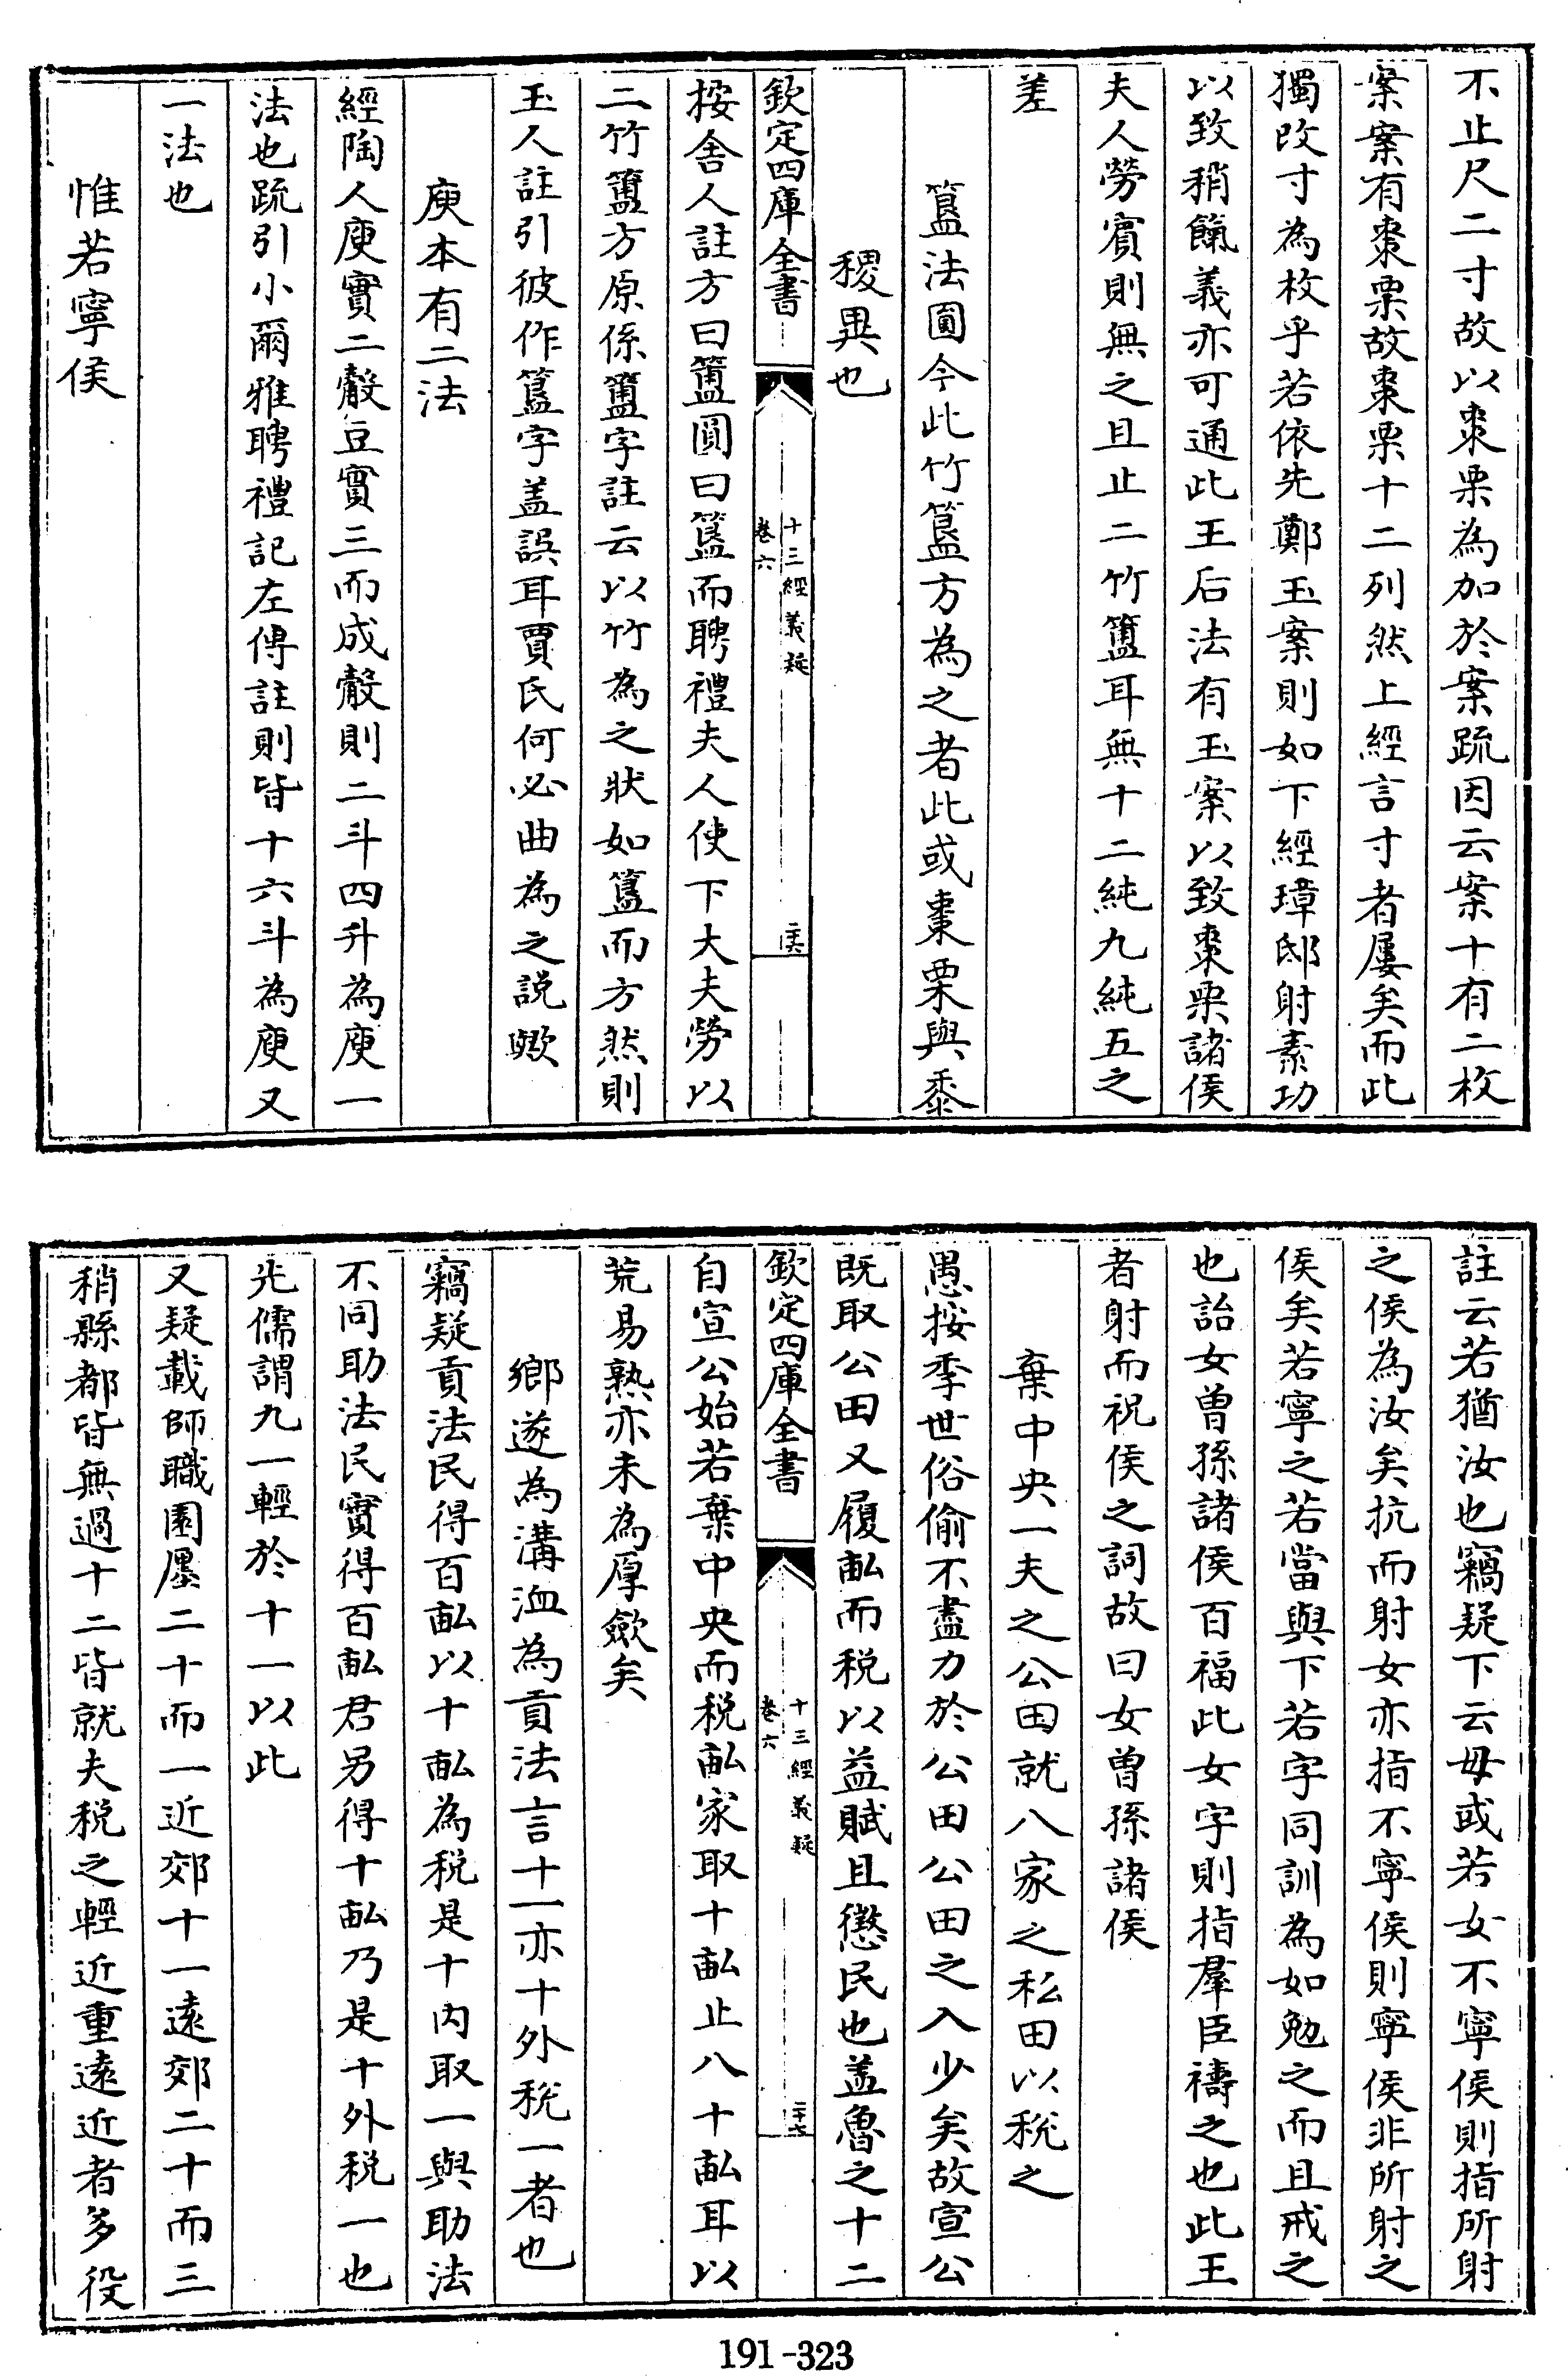 不止尺二寸故以棗栗為加於案疏因云案十有二枚
案案有棗栗故棗栗十二列然上經言寸者屢矣而此
獨改寸為枚乎若依先鄭玉案則如下經璋邸射素功
以致稍餼義亦可通此王后法有玉案以致棗栗諸侯
夫人勞賓則無之且止二竹簠耳無十二純九純五之
差
簋法圓今此竹簋方為之者此或棗栗與黍
稷異也
欽定四庫全書
十三經義疑
卷六
二六
按舍人註方曰簠圓曰簋而聘禮夫人使下大夫勞以
二竹簠方原係簠字註云以竹為之狀如簋而方然則
玉人註引彼作簋字盖誤耳賈氏何必曲為之説歟
庾本有二法
經陶人庾實二觳豆實三而成觳則二斗四升為庾一
法也疏引小爾雅聘禮記左傳註則皆十六斗為庾又
一法也
惟若寧侯
註云若猶汝也竊疑下云毋或若女不寧侯則指所射
之侯為汝矣抗而射女亦指不寧侯則寧侯非所射之
侯矣若寧之若當與下若字同訓為如勉之而且戒之
也詒女曽孫諸侯百福此女字則指羣臣禱之也此王
者射而祝侯之詞故曰女曽孫諸侯
棄中央一夫之公田就八家之私田以税之
愚按季世俗偷不盡力於公田公田之入少矣故宣公
既取公田又履畝而税以益賦且懲民也盖魯之十二
欽定四庫全書
十三經義疑
卷六
二十七
自宣公始若棄中央而税畝家取十畝止八十畝耳以
荒易熟亦未為厚歛矣
鄉遂為溝洫為貢法言十一亦十外税一者也
竊疑貢法民得百畝以十畝為税是十内取一與助法
不同助法民實得百畝君另得十畝乃是十外税一也
先儒謂九一輕於十一以此
又疑載師職園廛二十而一近郊十一遠郊二十而三
稍縣都皆無過十二皆就夫税之輕近重遠近者多役
191-323